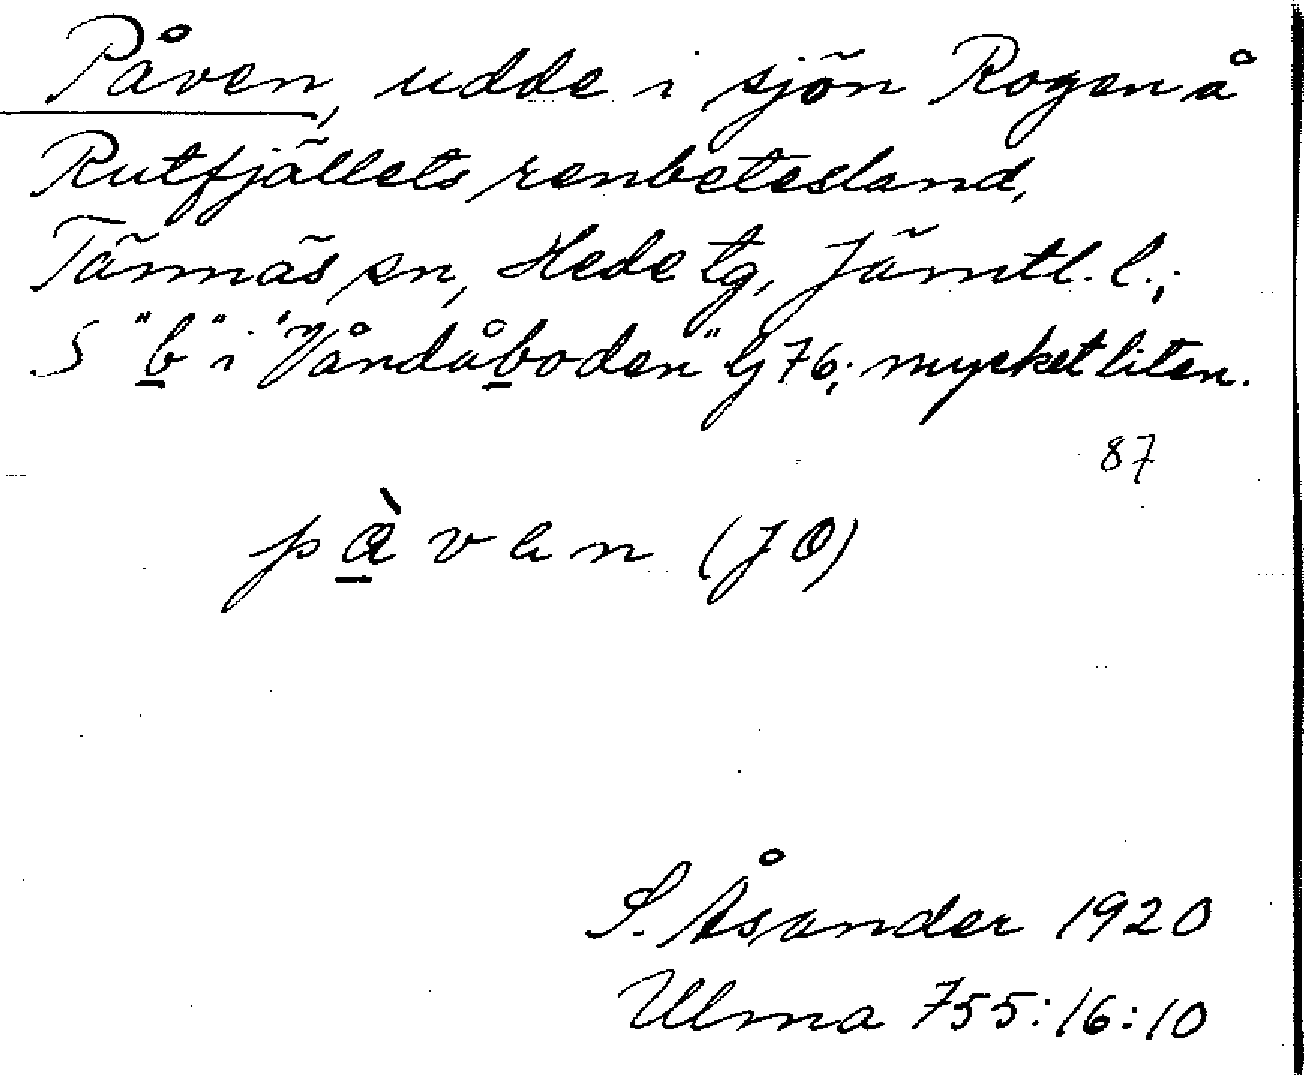 Påven, udde i sjön Rogen å
Rutfjällets renbetesland,
Tännäs sn, Hede tg, Jämtl. l.;
S "b" i "Våndåboden" G 76; mycket liten.
87
påven (JO)
S. Åsander 1920
Ulma 755:16:10